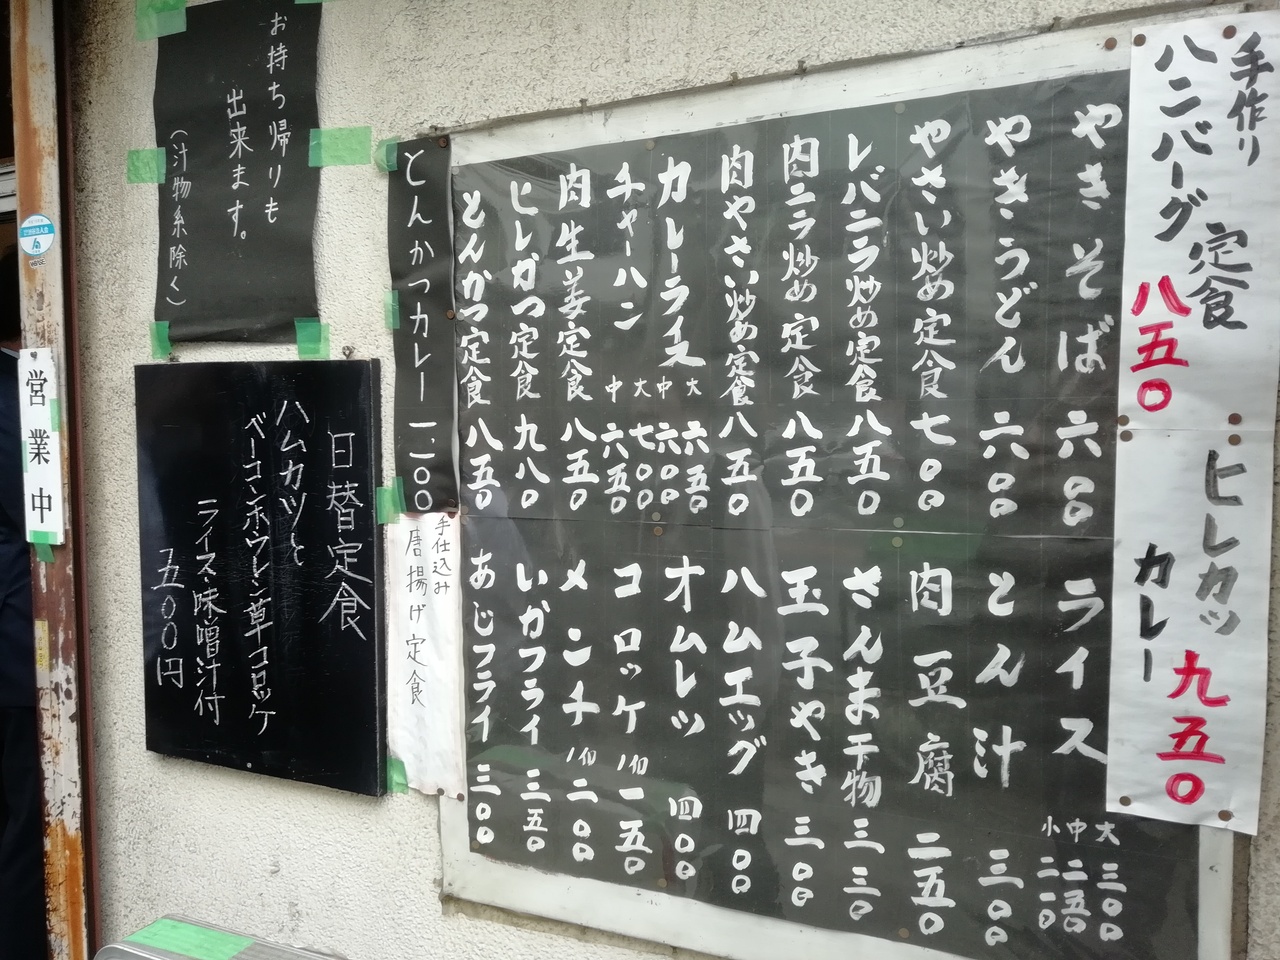 手作り
ハンバーグ定食
八五〇
ヒレカツ
カレー
九五〇
やきそば 六〇〇
やきうどん 六〇〇
やさい炒め定食 七〇〇
レバニラ炒め定食 八五〇
肉ニラ炒め定食 八五〇
肉やさい炒め定食 八五〇
カレーライス 大 六五〇 中 六〇〇
チャーハン 大 七〇〇 中 六五〇
肉生姜定食 八五〇
ヒレカツ定食 九八〇
とんかつ定食 八五〇
ライス 大 三〇〇 中 二五〇 小 二一〇
とん汁 三〇〇
肉豆腐 二五〇
さんま干物 三三〇
玉子やき 三〇〇
ハムエッグ 四〇〇
オムレツ 四〇〇
コロッケ 1個 一五〇
メンチ 1個 二〇〇
いかフライ 三五〇
あじフライ 三〇〇
とんかつカレー 一、一〇〇
手仕込み
唐揚げ定食
お持ち帰りも
出来ます。
(汁物系除く)
日替定食
ハムカツと
ベーコンホウレン草コロッケ
ライス・味噌汁付
七五〇〇円
営業中